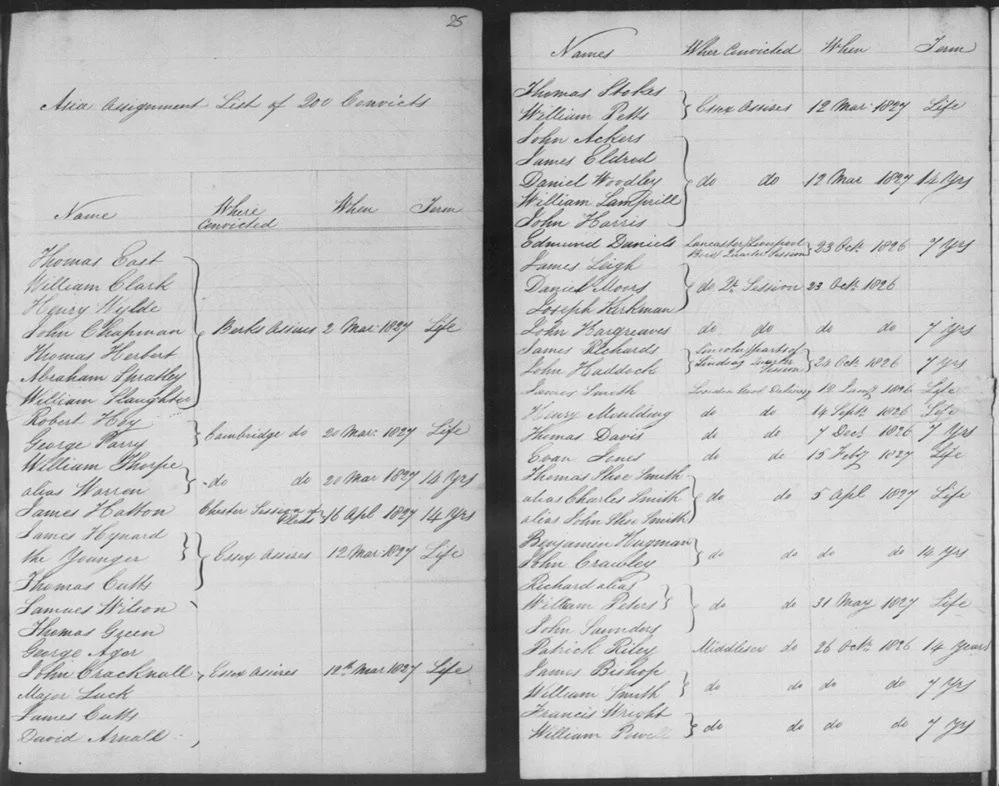 25
Asia Assignment List of 200 Convicts
Name Where Convicted When Term
Thomas East
William Clark
Henry Wylde
John Chapman Berks Assizes 2 Mar: 1827 Life
Thomas Herbert
Abraham Spratley
William Slaughter
Robert Hoy
George Parry Cambridge do 20 Mar: 1827 Life
William Thorpe
alias Warren do do 20 Mar 1827 14 Yrs
James Hatton Chester Session of 16 Apl 1827 14 Yrs
James Hynard
the Younger Essex Assizes 12 Mar: 1827 Life
Thomas Cutts
Samuel Wilson
Thomas Green
George Ager
John Cracknall Essex Assizes 12th Mar 1827 Life
Major Luck
James Cutts
David Arnall
Names Wher Convicted When Term
Thomas Stokes
William Petts Essex Assizes 12 Mar: 1827 Life
John Ackers
James Eldred
Daniel Woodley do do 12 Mar 1827 14 Yrs
William Lamprill
John Harris
Edmund Daniels Lancaster/Liverpool Boro' Quarter Session 23 Oct. 1826 7 Yrs
James Leigh
Daniel Moors do Qr. Session 23 Oct. 1826
Joseph Kirkman
John Hargreaves do do do do 7 Yrs
James Richards Lincoln/parts of
John Haddock Lindsey Quarter Session 24 Oct. 1826 7 Yrs
James Smith London Gaol Delivery 12 Jany 1826 Life
Henry Moulding do do 14 Sept. 1826 Life
Thomas Davis do do 7 Decr. 1826 7 Yrs
Evan Jones do do 15 Feby 1827 Life
Thomas Shoe Smith
alias Charles Smith do do 5 Apl 1827 Life
alias John Shoe Smith
Benjamin Hugman
John Crawley do do 14 Yrs
Richard alias
William Peters do do 31 May 1827 Life
John Saunders
Patrick Riley Middlesex do 26 Oct. 1826 14 Years
James Bishop
William Smith do do do do 7 Yrs
Francis Wright
William Powell do do do do 7 Yrs